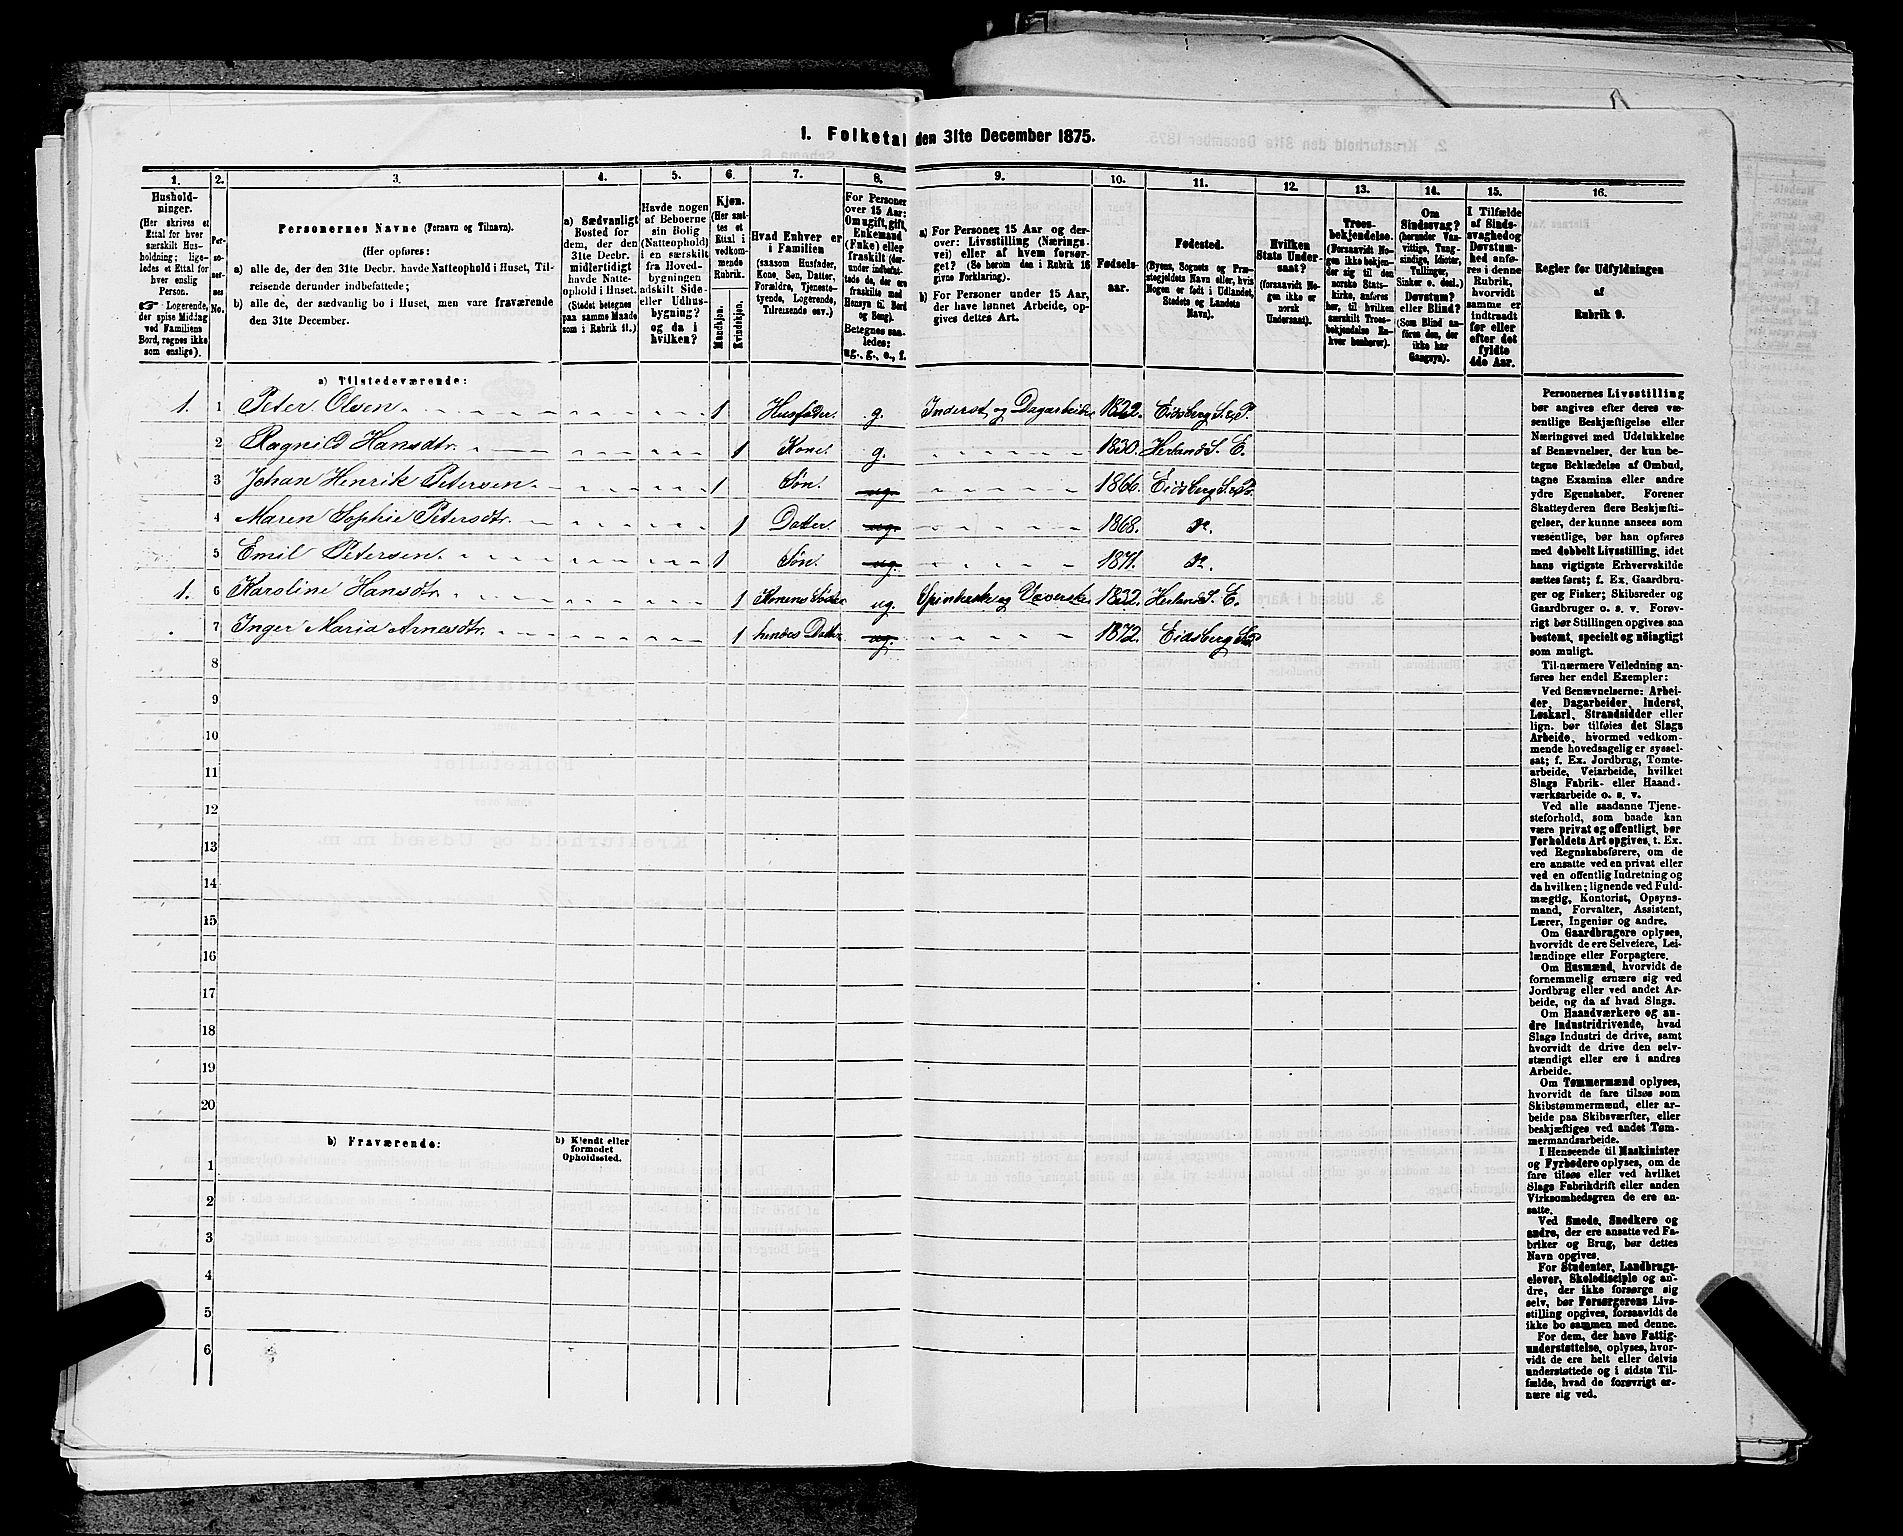 1. Folketal den 31te December 1875.
1. 2. 3. 4. 5. 6. 7. 8. 9. 10. 11. 12. 13. 14. 15. 16.
Hushold-
ninger.
(Her skrives et
Ettal for hver
særskilt Hus-
holdning; lige-
ledes et Ettal for
hver enslig
Person.
☞ Logerende,
der spise Middag
ved Familiens
Bord, regnes ikke
som enslige).
Per-
so-
ner-
nes
No.
Personernes Navne (Fornavn og Tilnavn).
(Her opføres:
a) alle de, der den 31te Decbr. havde Natteophold i Huset, Til-
reisende derunder indbefattede;
b) alle de, der sædvanlig bo i Huset, men vare fraværende
den 31te December.
a) Sædvanligt
Bosted for
dem, der den
31te Decbr.
midlertidigt
havde Natte-
ophold i Huset.
(Stedet betegnes
paa samme Maade
som i Rubrik 11.)
Havde nogen
af Beboerne
sin Bolig
(Natteophold)
i en særskilt
fra Hoved-
bygningen
adskilt Side-
eller Udhus-
bygning?
og da i
hvilken?
Kjøn.
(Her sæt-
tes et
Ettal i
vedkom-
mende
Rubrik.
Mandkjøn.
Kvindekjøn.
Hvad Enhver er
i Familien
(saasom Husfader,
Kone, Søn, Datter,
Forældre, Tjeneste-
tyende, Logerende,
Tilreisende osv.)
For Personer
over 15 Aar:
Om ugift, gift,
Enkemand
(Enke) eller
fraskilt (der-
under indbefat-
tede de, der ere
fraskilte med
Hensyn til Bord
og Seng).
Betegnes saa-
ledes:
ug., g., e., f.
a) For Personer 15 Aar og der-
over: Livsstilling (Nærings-
vei) eller af hvem forsør-
get? (Se herom den i Rubrik 16
givne Forklaring).
b) For Personer under 15 Aar,
der have lønnet Arbeide, op-
gives dettes Art.
Fødsels-
aar.
Fødested.
(Byens, Sognets og Præ-
stegjeldets Navn eller, hvis
Nogen er født i Udlandet,
Stedets og Landets
Navn).
Hvilken
Stats Under-
saat?
(forsaavidt No-
gen ikke er
norsk
Undersaat).
Troes-
bekjendelse.
(Forsaavidt No-
gen ikke bekjen-
der sig til den
norske Stats-
kirke, anføres
her, til hvilken
særskilt Troes-
bekjendelse En-
hver henhører).
Om
Sindssvag?
(herunder Van-
vittige, Tung-
sindige, Idioter,
Tullinger,
Sinker o. desl.)
Døvstum?
eller Blind?
(Som Blind an-
føres den, der
ikke har
Gangsyn).
I Tilfælde
af Sinds-
svaghed og
Døvstum-
hed anfø-
res i denne
Rubrik,
hvorvidt
samme er
indtraadt
før eller
efter det
fyldte
4de Aar.
Regler for Udfyldningen
af
Rubrik 9.
a) Tilstedeværende:
1. 1 Peter Olsen 1 Husfader. g. Inderst og Dagarbeider 1822. Eidsberg S. & P.
2 Ragnild Hansdtr. 1 Kone. g. 1830. Herland S. E.
3 Johan Henrik Petersen 1 Søn. ug. 1866. Eidsberg S. & P.
4 Maren Sophie Petersdtr. 1 Datter. ug. 1868. do.
5 Emil Petersen. 1 Søn. ug. 1871. do.
1. 6 Karoline Hansdtr. 1 Konens Søster ug. Spinderske og Væverske 1832. Herland S. E.
7 Inger Maria Arnesdtr. 1 hendes Datter ug. 1872. Eidsberg S. & P.
8
9
10
11
12
13
14
15
16
17
18
19
20
b) Fraværende:
b) Kjendt eller
formodet
Opholdssted.
1
2
3
4
5
6
Personernes Livsstilling
bør angives efter deres væ-
sentlige Beskjæftigelse eller
Næringsvei med Udelukkelse
af Benævnelser, der kun be-
tegne Beklædelse af Ombud,
tagne Examina eller andre
ydre Egenskaber. Forener
Skatteyderen flere Beskjæfti-
gelser, der kunne ansees som
væsentlige, bør han opføres
med dobbelt Livsstilling, idet
hans vigtigste Erhvervskilde
sættes først; f. Ex. Gaardbru-
ger og Fisker; Skibsreder og
Gaardbruger o. s. v. Forøv-
rigt bør Stillingen opgives saa
bestemt, specielt og nøiagtigt
som muligt.
Til nærmere Veiledning an-
føres her endel Exempler:
Ved Benævnelserne: Arbei-
der, Dagarbeider, Inderst,
Løskarl, Strandsidder eller
lign. bør tilføies det Slags
Arbeide, hvormed vedkom-
mende hovedsagelig er syssel-
sat; f. Ex. Jordbrug, Tomte-
arbeide, Veiarbeide, hvilket
Slags Fabrik- eller Haand-
værksarbeide o. s. v.
Ved alle saadanne Tjene-
steforhold, som baade kan
være privat og offentligt, bør
Forholdets Art opgives, t. Ex.
ved Regnskabsførere, om de
ere ansatte ved en privat eller
ved en offentlig Indretning og
da hvilken; lignende ved Fuld-
mægtig, Kontorist, Opsyns-
mand, Forvalter, Assistent,
Lærer, Ingeniør og andre.
Om Gaardbrugere oplyses,
hvorvidt de ere Selveiere, Lei-
lændinge eller Forpagtere.
Om Husmænd, hvorvidt de
fornemmelig ernære sig ved
Jordbrug eller ved andet Ar-
beide, og da af hvad Slags.
Om Haandværkere og an-
dre Industridrivende, hvad
Slags Industri de drive, samt
hvorvidt de drive den selv-
stændigt eller ere i andres
Arbeide.
Om Tømmermænd oplyses,
hvorvidt de fare tilsøs som
Skibstømmermænd, eller ar-
beide paa Skibsværfter, eller
beskjæftiges ved andet Tøm-
mermandsarbeide.
I Henseende til Maskinister
og Fyrbødere oplyses, om de
fare tilsøs eller ved hvilket
Slags Fabrikdrift eller anden
Virksomhedsgren de ere an-
satte.
Ved Smede, Snedkere og
andre, der ere ansatte ved Fa-
briker og Brug, bør dettes
Navn opgives.
For Studenter, Landbrugs-
elever, Skoledisciple og an-
dre, der ikke forsørge sig
selv, bør Forsørgerens Livs-
stilling opgives, forsaavidt de
ikke bo sammen med denne.
For dem, der have Fattig-
understøttelse, oplyses, hvor-
vidt de ere helt eller delvis
understøttede og i sidste Til-
fælde, hvad de forøvrigt er-
nære sig ved.